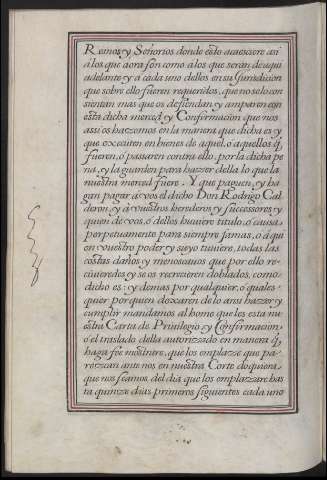 Reinos y Señorios donde esto acaeciere asi
á los que aora son como alos que seran de aqui
adelante y á cada uno dellos en su Jurisdicion
que sobre ello fueren requeridos, que no selo con
sientan mas que os defiendan y amparen con
esta dicha merced y Confirmacion que nos
assi os hazemos en la manera que dicha es y
que executen en bienes de aquel, ó aquellos q̃
fueren, ó passaren contra ello, por la dicha pe
na, y la guarden para hazer della lo que la
nuestra merced fuere. Y que paguen, y ha
gan pagar á vos el dicho Don Rodrigo Cal
deron, y á vuestros herederos y successores, y
quien de vos, ó dellos huviere titulo, ó causa,
perpetuamente para siempre Jamas, ó á qui
en vuestro poder y suyo tuviere, todas las
costas daños y menoscavos que por ello re-
civieredes y se os recrecieren doblados, como
dicho es: y demas por qualquier, ó quales-
quier por quien dexaren de lo ansi hazer y
cumplir mandamos al home que les esta nu
estra Carta de Privilegio y Confirmacion,
ó el traslado della autorizado en manera q̃
haga fee mostrare, que los emplaze que pa-
rezcan ante nos en nuestra Corte do quiera
que nos seamos del dia que los emplazare has
ta quinze dias primeros siguientes cada uno